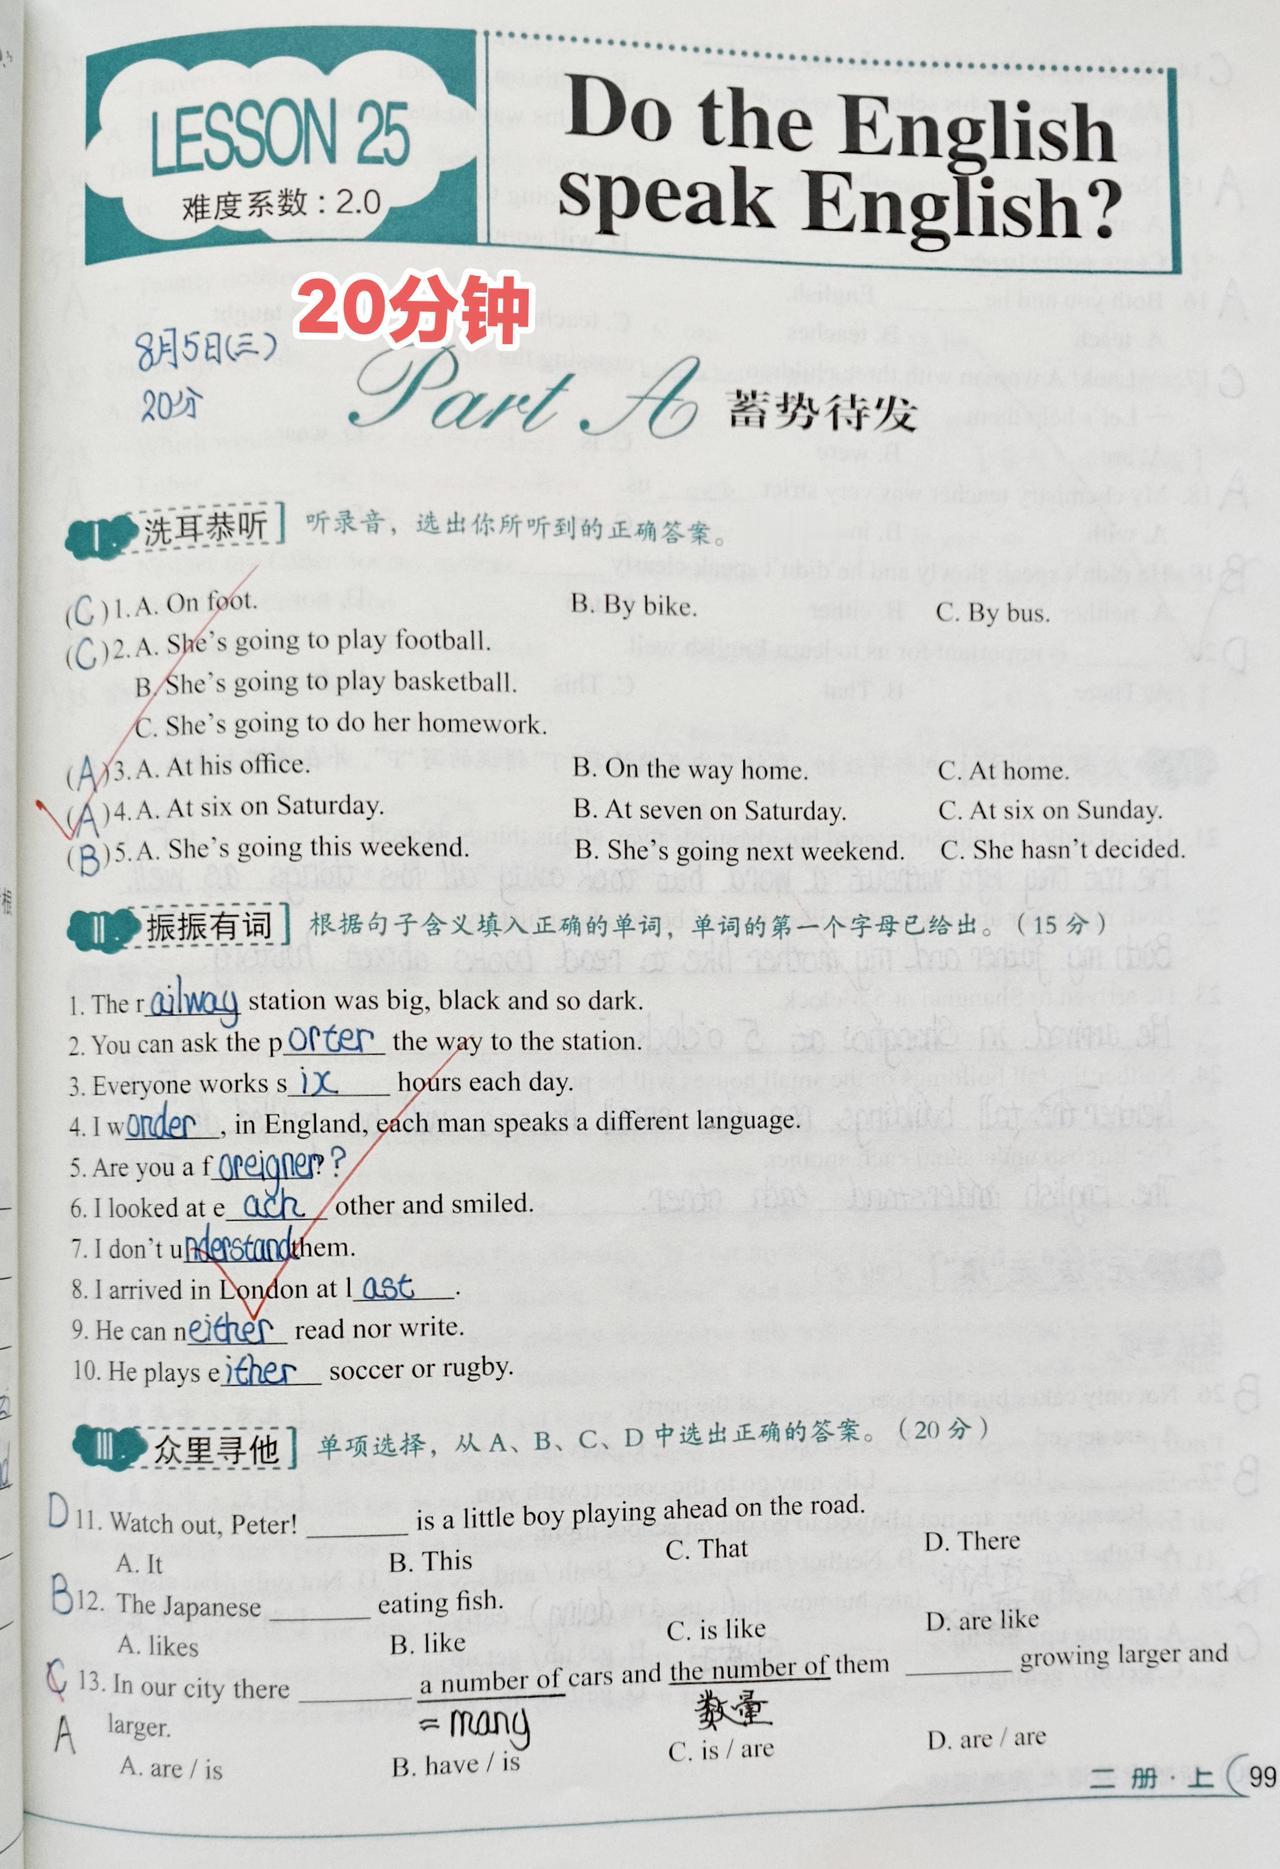 LESSON 25
难度系数：2.0
Do the English
speak English?
20分钟
8月5日(三)
20分
Part A 蓄势待发
I 洗耳恭听 听录音，选出你所听到的正确答案。
(C)1. A. On foot. B. By bike. C. By bus.
(C)2. A. She's going to play football.
B. She's going to play basketball.
C. She's going to do her homework.
(A)3. A. At his office. B. On the way home. C. At home.
(A)4. A. At six on Saturday. B. At seven on Saturday. C. At six on Sunday.
(B)5. A. She's going this weekend. B. She's going next weekend. C. She hasn't decided.
II 振振有词 根据句子含义填入正确的单词，单词的第一个字母已给出。（15分）
1. The railway station was big, black and so dark.
2. You can ask the porter the way to the station.
3. Everyone works six hours each day.
4. I wonder, in England, each man speaks a different language.
5. Are you a foreigner??
6. I looked at each other and smiled.
7. I don't understand them.
8. I arrived in London at last.
9. He can neither read nor write.
10. He plays either soccer or rugby.
III 众里寻他 单项选择，从 A、B、C、D 中选出正确的答案。（20分）
D 11. Watch out, Peter! ________ is a little boy playing ahead on the road.
A. It B. This C. That D. There
B 12. The Japanese ________ eating fish.
A. likes B. like C. is like D. are like
C 13. In our city there ________ a number of cars and the number of them ________ growing larger and
A larger. = many 数量
A. are / is B. have / is C. is / are D. are / are
二册·上 99